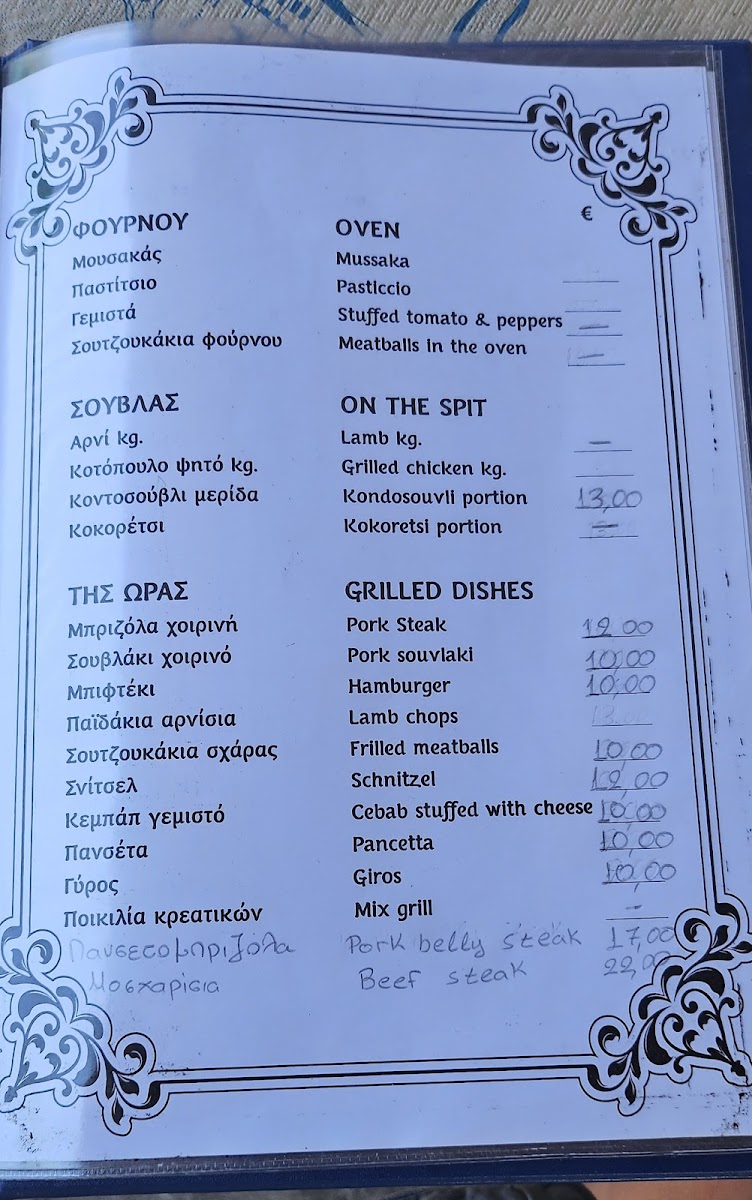 €
ΦΟΥΡΝΟΥ OVEN
Μουσακάς Mussaka
Παστίτσιο Pasticcio
Γεμιστά Stuffed tomato & peppers —
Σουτζουκάκια φούρνου Meatballs in the oven —
ΣΟΥΒΛΑΣ ON THE SPIT
Αρνί kg. Lamb kg. —
Κοτόπουλο ψητό kg. Grilled chicken kg.
Κοντοσούβλι μερίδα Kondosouvli portion 13,00
Κοκορέτσι Kokoretsi portion —
ΤΗΣ ΩΡΑΣ GRILLED DISHES
Μπριζόλα χοιρινή Pork Steak 12,00
Σουβλάκι χοιρινό Pork souvlaki 10,00
Μπιφτέκι Hamburger 10,00
Παϊδάκια αρνίσια Lamb chops
Σουτζουκάκια σχάρας Frilled meatballs 10,00
Σνίτσελ Schnitzel 12,00
Κεμπάπ γεμιστό Cebab stuffed with cheese 10,00
Πανσέτα Pancetta 10,00
Γύρος Giros 10,00
Ποικιλία κρεατικών Mix grill -
Πανσετομπριζόλα Pork belly steak 17,00
Μοσχαρίσια Beef steak 22,00